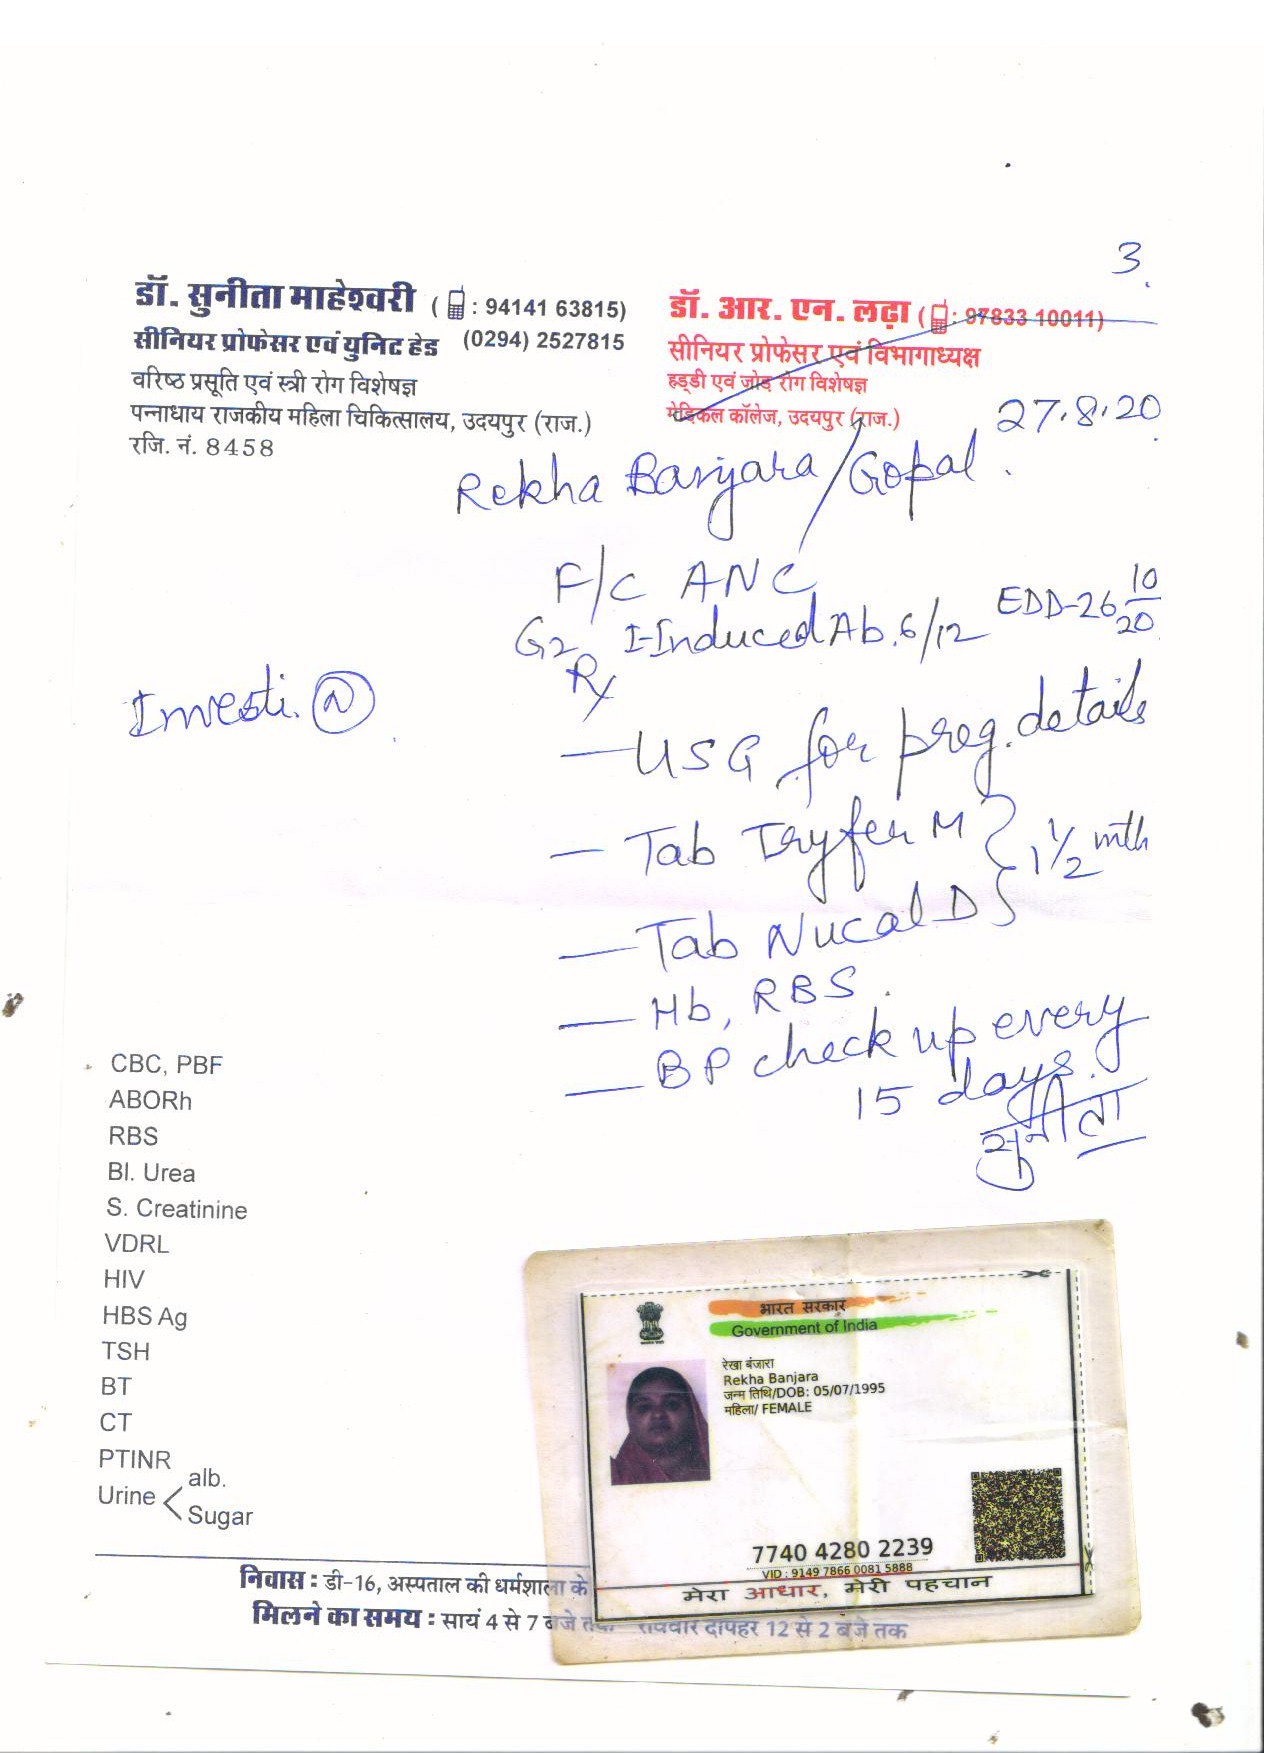 3
डॉ. सुनीता माहेश्वरी ( : 94141 63815)
सीनियर प्रोफेसर एवं युनिट हेड (0294) 2527815
वरिष्ठ प्रसूति एवं स्त्री रोग विशेषज्ञ
पन्नाधाय राजकीय महिला चिकित्सालय, उदयपुर (राज.)
रजि. नं. 8458
डॉ. आर. एन. लढ़ा ( : 97833 10011)
सीनियर प्रोफेसर एवं विभागाध्यक्ष
हड्डी एवं जोड़ रोग विशेषज्ञ
मेडिकल कॉलेज, उदयपुर (राज.)
27.8.20
Rekha Banjara/Gopal
F/C ANC
G2 I-Induced Ab. 6/12 EDD-26 10/20
Rx
Investi. N
— USG for preg. details
— Tab Tryfer M } 1 1/2 mth
— Tab Nucal D
— Hb, RBS
— BP check up every
15 days.
सुनीता
CBC, PBF
ABORh
RBS
Bl. Urea
S. Creatinine
VDRL
HIV
HBS Ag
TSH
BT
CT
PTINR
Urine < alb.
Sugar
भारत सरकार
Government of India
रेखा बंजारा
Rekha Banjara
जन्म तिथि/DOB: 05/07/1995
महिला/ FEMALE
7740 4280 2239
VID : 9149 7866 0081 5888
मेरा आधार, मेरी पहचान
निवास : डी-16, अस्पताल की धर्मशाला के
मिलने का समय : सायं 4 से 7 बजे तक रविवार दोपहर 12 से 2 बजे तक